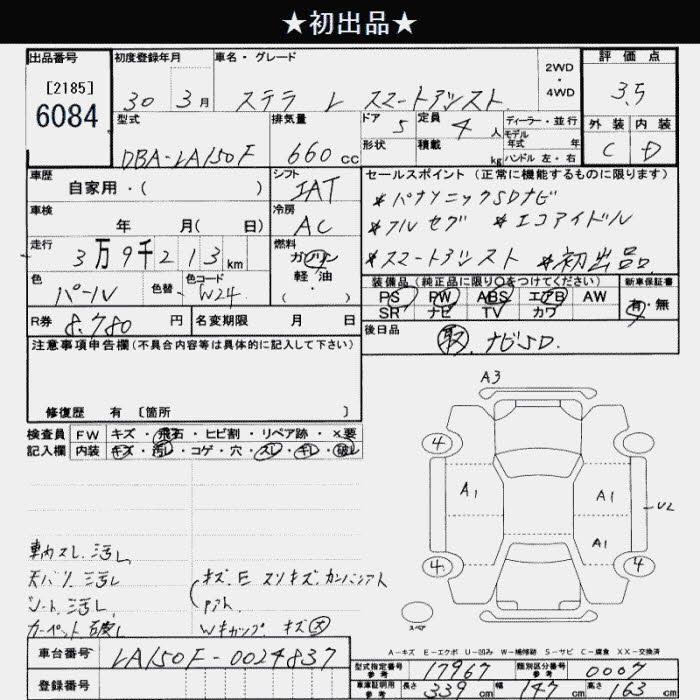 ★初出品★
出品番号 初度登録年月 車名・グレード 2WD・4WD 評価点
[2185]
6084
30 3月 ステラ L スマートアシスト 3.5
型式 排気量 ドア 5 定員 4人 ディーラー・並行 外装 内装
モデル年式 年
DBA-LA150F 660cc 形状 積載 kg ハンドル 左・右 C D
車歴 シフト セールスポイント(正常に機能するものに限ります)
自家用・( ) IAT *パナソニックSDナビ
車検 冷房 *フルセグ *エコアイドル
年 月( 日) AC
走行 燃料 *スマートアシスト *初出品
3万9千213km ガソリン
軽・油
(・)
色 色替 色コード 装備品(純正品に限り○をつけてください) 新車保証書
パール W24 PS PW ABS エアB AW 有・無
SR ナビ TV カワ
R券 8.780円 名変期限 月 日 後日品 取 ナビSD.
注意事項申告欄(不具合内容等は具体的に記入して下さい)
修復歴 有 〔箇所 〕
検査員 FW キズ・飛石・ヒビ割・リペア跡・×要
記入欄 内装 キズ・汚レ・コゲ・穴・スレ・キレ・破レ
A3
4
A1 A1 U2
A1
4 4
スペア
車内スレ.汚レ
天バリ.汚レ キズ.E スリキズ.
シート.汚レ
カーペット破レ Wキャップ キズ大
A-キズ E-エクボ U-凹み W-補修跡 S-サビ C-腐食 XX-交換済
車台番号 LA150F-0024837
登録番号
型式指定番号 参考 17967 類別区分番号 参考 0007
車庫証明用 参考 長さ 339cm 幅 147cm 高さ 63cm